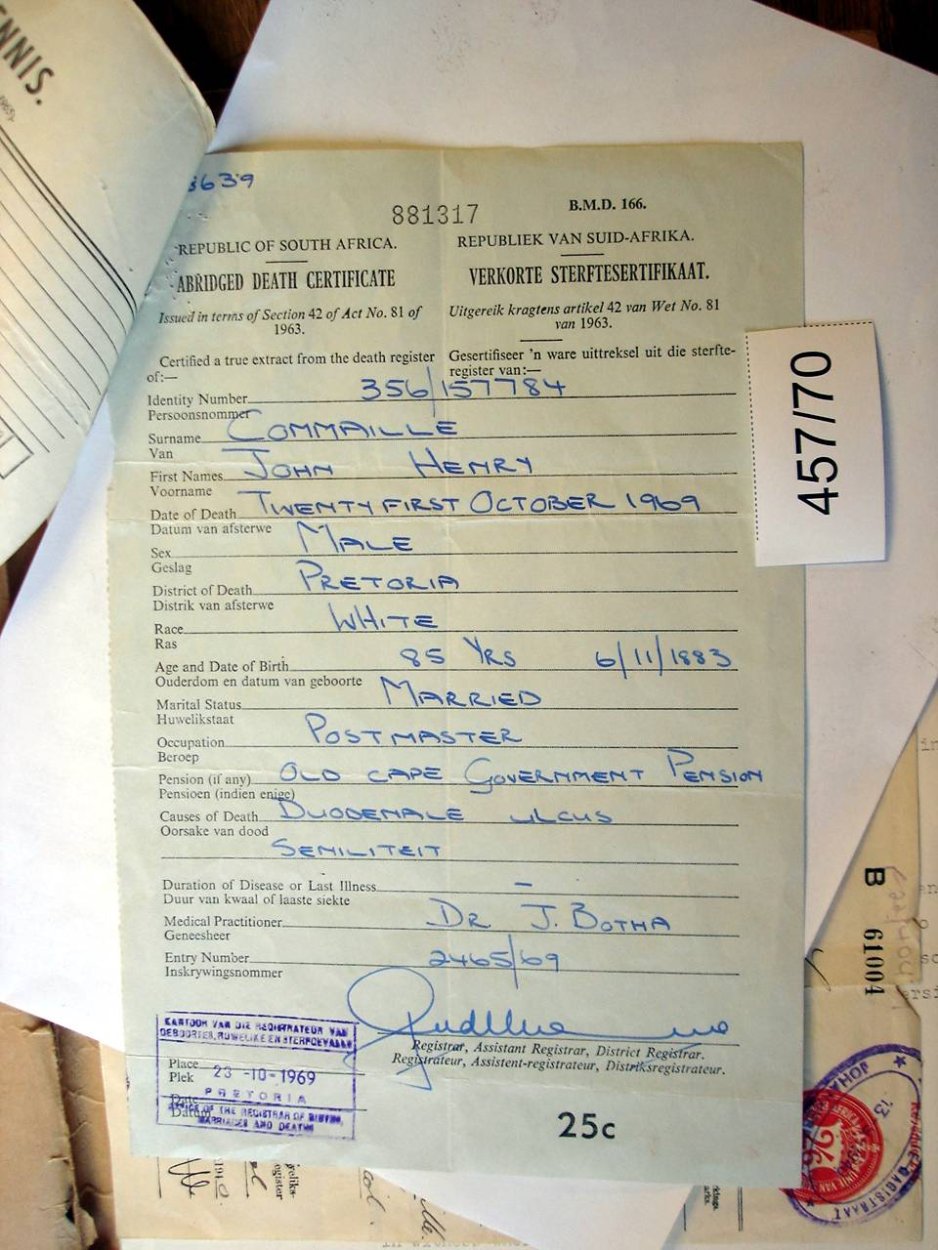 ENNIS.
3639
881317
B.M.D. 166.
REPUBLIC OF SOUTH AFRICA.
ABRIDGED DEATH CERTIFICATE
Issued in terms of Section 42 of Act No. 81 of
1963.
REPUBLIEK VAN SUID-AFRIKA.
VERKORTE STERFTESERTIFIKAAT.
Uitgereik kragtens artikel 42 van Wet No. 81
van 1963.
Certified a true extract from the death register
of:—
Gesertifiseer 'n ware uittreksel uit die sterfte-
register van:—
Identity Number 356/157784
Persoonsnommer
Surname COMMAILLE
Van
First Names JOHN HENRY
Voorname
Date of Death TWENTY FIRST OCTOBER 1969
Datum van afsterwe
Sex MALE
Geslag
District of Death PRETORIA
Distrik van afsterwe
Race WHITE
Ras
Age and Date of Birth 85 YRS 6/11/1883
Ouderdom en datum van geboorte
Marital Status MARRIED
Huwelikstaat
Occupation POSTMASTER
Beroep
Pension (if any) OLD CAPE GOVERNMENT PENSION
Pensioen (indien enige)
Causes of Death DUODENALE ULCUS
Oorsake van dood
SENILITEIT
Duration of Disease or Last Illness –
Duur van kwaal of laaste siekte
Medical Practitioner DR J. BOTHA
Geneesheer
Entry Number 2465/69
Inskrywingsnommer
Registrar, Assistant Registrar, District Registrar.
Registrateur, Assistent-registrateur, Distriksregistrateur.
KANTOOR VAN DIE REGISTRATEUR VAN
GEBOORTES, HUWELIKE EN STERFGEVALLE
Place
Plek
23 -10- 1969
PRETORIA
Date
Datum
OFFICE OF THE REGISTRAR OF BIRTHS,
MARRIAGES AND DEATHS
25c
457/70
B 61004